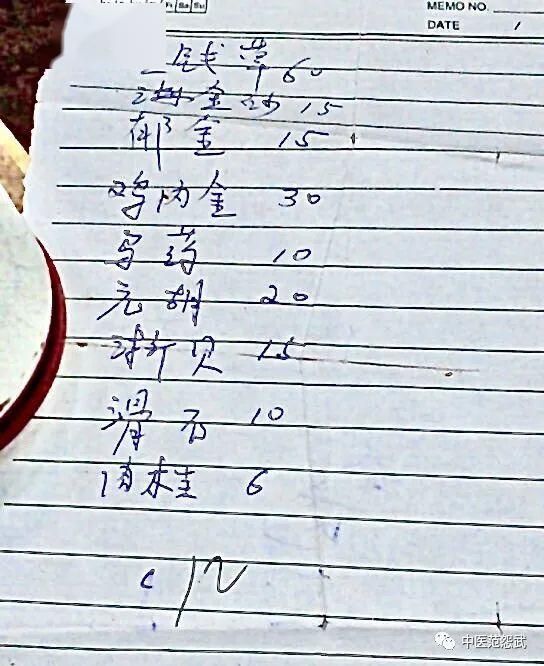 Fr Sa Su
MEMO NO.
DATE /
钱草 60
海金沙 15
郁金 15
鸡内金 30
乌药 10
元胡 20
浙贝 15
滑石 10
6
中医范怨武